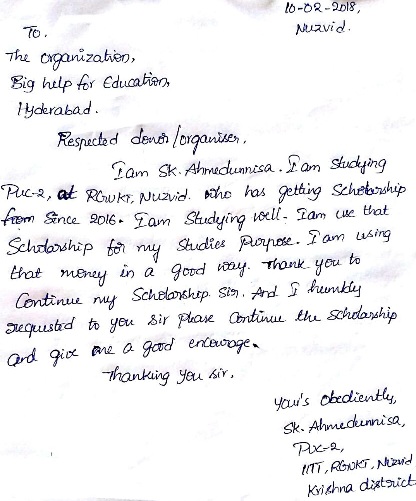 10-02-2018,
Nuzvid.
To.
The organization,
Big help for Education,
Hyderabad.
Respected donor/organiser,
I am SK. Ahmedunnisa. I am studying
Puc-2, at RGUKT, Nuzvid. who has getting Scholarship
from Since 2016. I am Studying well. I am use that
Scholarship for my Studies Purpose. I am using
that money in a good way. Thank you to
Continue my Scholarship Sir. And I humbly
requested to you sir Please Continue the Scholarship
and give me a good encourage.
Thanking you sir.
your's obediently,
SK. Ahmedunnisa,
Puc-2,
IIIT, RGUKT, Nuzvid
Krishna district